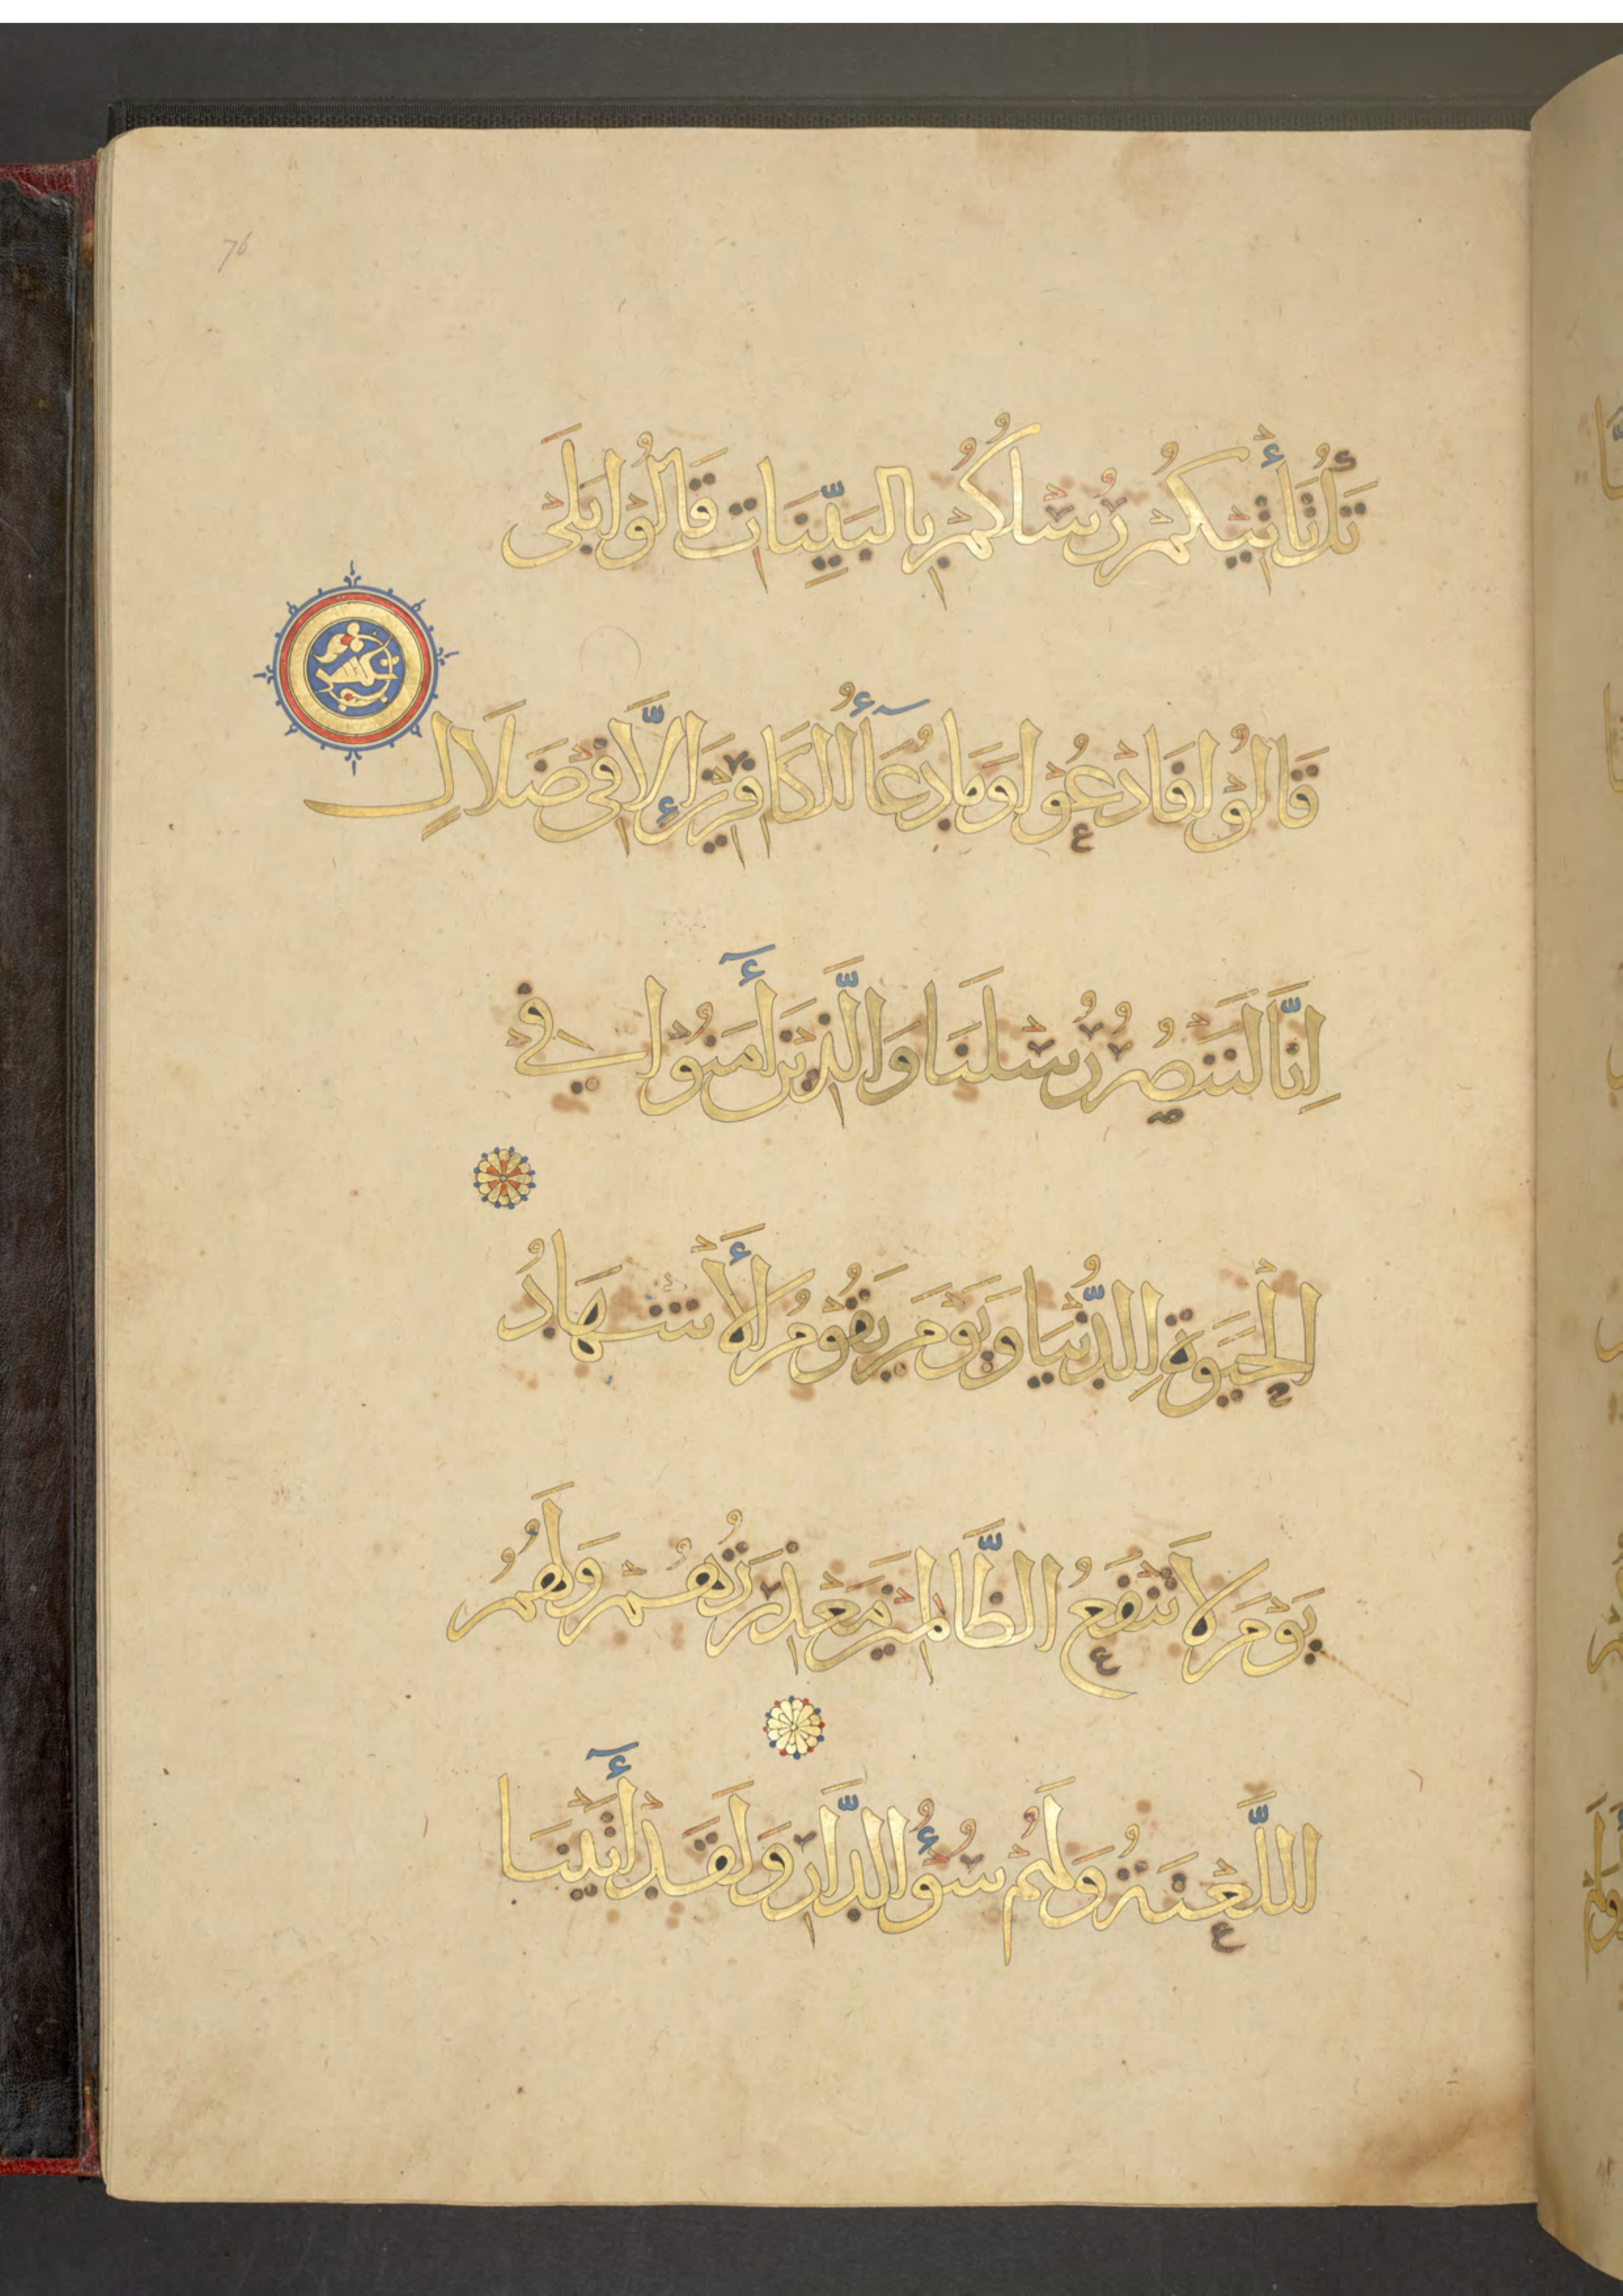 76
تَكُ تَأْتِيكُمْ رُسُلُكُمْ بِالبَيِّنَاتِ قَالُوْا بَلَى
قَالُوْا فَادْعُوْا وَمَا دُعَآءُ الْكَافِرِيْنَ إِلَّا فِيْ ضَلَالٍ
اِنَّا لَنَنْصُرُ رُسُلَنَا وَالَّذِيْنَ أٓمَنُوْا فِيْ
الْحَيَوةِ الدُّنْيَا وَيَوْمَ يَقُوْمُ الْأَشْهَادُ
يَوْمَ لَا تَنْفَعُ الظَّالِمِيْنَ مَعْذِرَتُهُمْ وَلَهُمُ
اللَّعْنَةُ وَلَهُمْ سُوْءُ الدَّارِ وَلَقَدْ أٓتَيْنَا